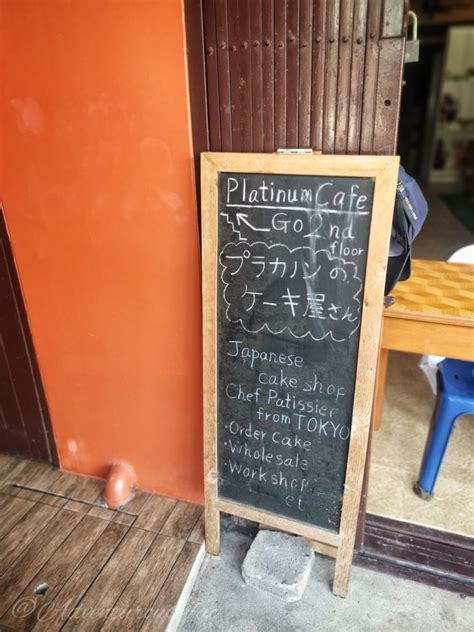 Platinum Cafe
Go 2nd
floor
プラカノンの
ケーキ屋さん
Japanese
cake shop
Chef Patissier
from TOKYO
・Order cake
・Wholesale
・Workshop
et